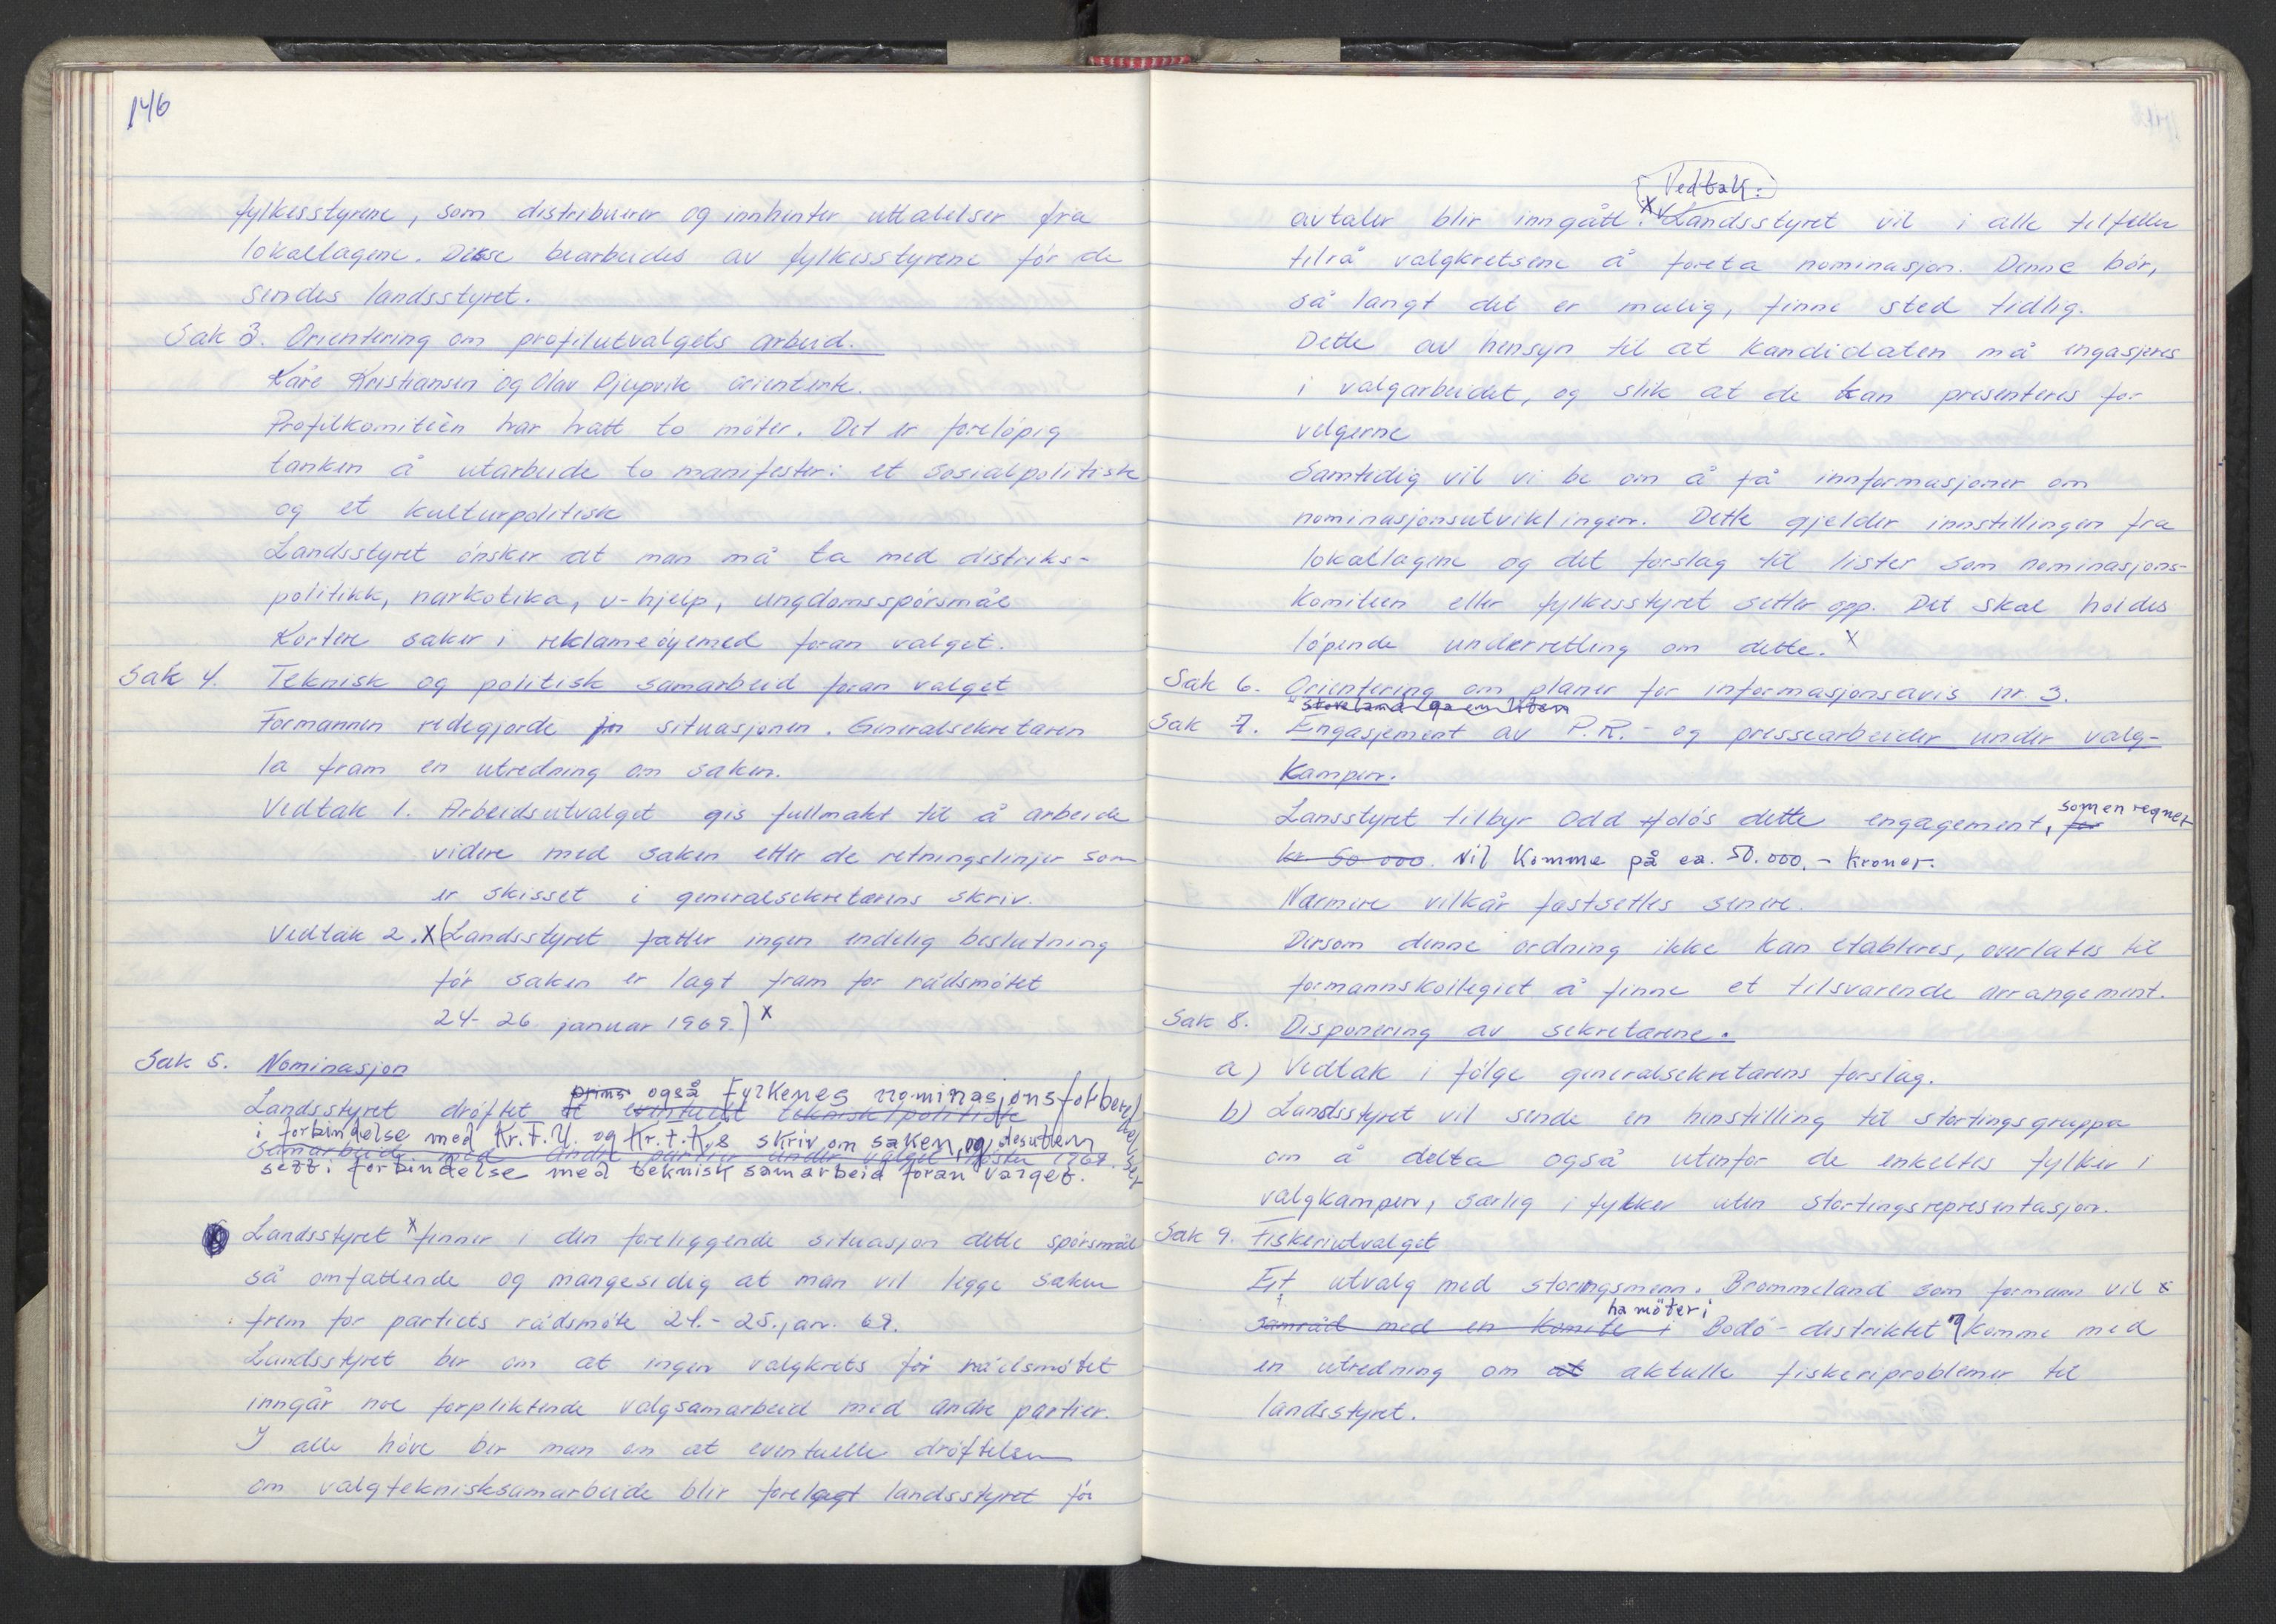 146
fylkesstyrene, som distribuerer og innhenter uttalelser fra
lokallagene. Disse bearbeides av fylkesstyrene før de
sendes landsstyret.
Sak 3. Orientering om profilutvalgets arbeid.
Kåre Kristiansen og Olav Djupvik orienterte.
Profilkomitéen har hatt to møter. Det er foreløpig
tanken å utarbeide to manifester: et sosialpolitisk
og et kulturpolitisk
Landsstyret ønsker at man må ta med distriks-
politikk, narkotika, u-hjelp, ungdomsspørsmål
Kortere saker i reklameøyemed foran valget.
Sak 4. Teknisk og politisk samarbeid foran valget
Formannen redegjorde for situasjonen. Generalsekretæren
la fram en utredning om saken.
Vedtak 1. Arbeidsutvalget gis fullmakt til å arbeide
videre med saken etter de retningslinjer som
er skisset i generalsekretærens skriv.
Vedtak 2. X (Landsstyret fatter ingen endelig beslutning
før saken er lagt fram for rådsmøtet
24-26 januar 1969.) X
Sak 5. Nominasjon
også Fylkenes nominasjonsforberedelser
Landsstyret drøftet et eventuelt teknisk/politisk
i forbindelse med Kr.F.U. og Kr.F.K.s skriv om saken, og desuten
samarbeide med andre partier under valget høsten 1969.
sett i forbindelse med teknisk samarbeid foran valget.
Landsstyret x finner i den foreliggende situasjon dette spørsmål
så omfattende og mangesidig at man vil legge saken
frem for partiets rådsmøte 24.-25. jan. 69.
Landsstyret ber om at ingen valgkrets før rådsmøtet
inngår noe forpliktende valgsamarbeid med andre partier.
I alle høve ber man om at eventuelle drøftelser
om valgtekniskssamarbeide blir forelagt landsstyret før
Vedtak:
avtaler blir inngått. X Landsstyret vil i alle tilfeller
tilrå valgkretsene å foreta nominasjon. Denne bør,
så langt det er mulig, finne sted tidlig.
Dette av hensyn til at kandidaten må engasjeres
i valgarbeidet, og slik at de kan presenteres for
velgerne
Samtidig vil vi be om å få innformasjoner om
nominasjonsutviklingen. Dette gjelder innstillingen fra
lokallagene og det forslag til lister som nominasjons-
komiteen eller fylkesstyret setter opp. Det skal holdes
løpende underretting om dette. X
Sak 6. Orientering om planer for informasjonsavis nr. 3.
Sak 7. Engasjement av P.R.- og pressearbeider under valg-
kampen.
som en regner
Lansstyret tilbyr Odd Holøs dette engagement, for
kr. 50 000. vil komme på ca. 50.000.- kroner.
Nærmere vilkår fastsettes senere.
Dersom denne ordning ikke kan etableres, overlates til
formannskollegiet å finne et tilsvarende arrangement.
Sak 8. Disponering av sekretærene.
a) Vedtak i følge generalsekretærens forslag.
b) Landsstyret vil sende en henstilling til stortingsgruppa
om å delta også utenfor de enkeltes fylker i
valgkampen, særlig i fylker uten stortingsrepresentasjon.
Sak 9. Fiskeriutvalget
Et utvalg med storingsmenn. Brommeland som formann vil x
ha møter i
samråd med en komite i Bodø-distriktet og komme med
en utredning om at aktuelle fiskeriproblemer til
landsstyret.